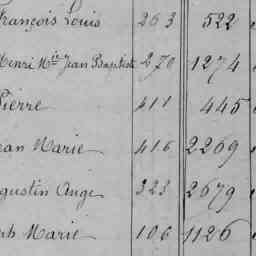 François Louis 263 522
Henri Mie Jean Baptiste 270 1274
Pierre 411 445
Jean Marie 416 2269
Augustin Ange 323 2679
Joseph Marie 106 1126